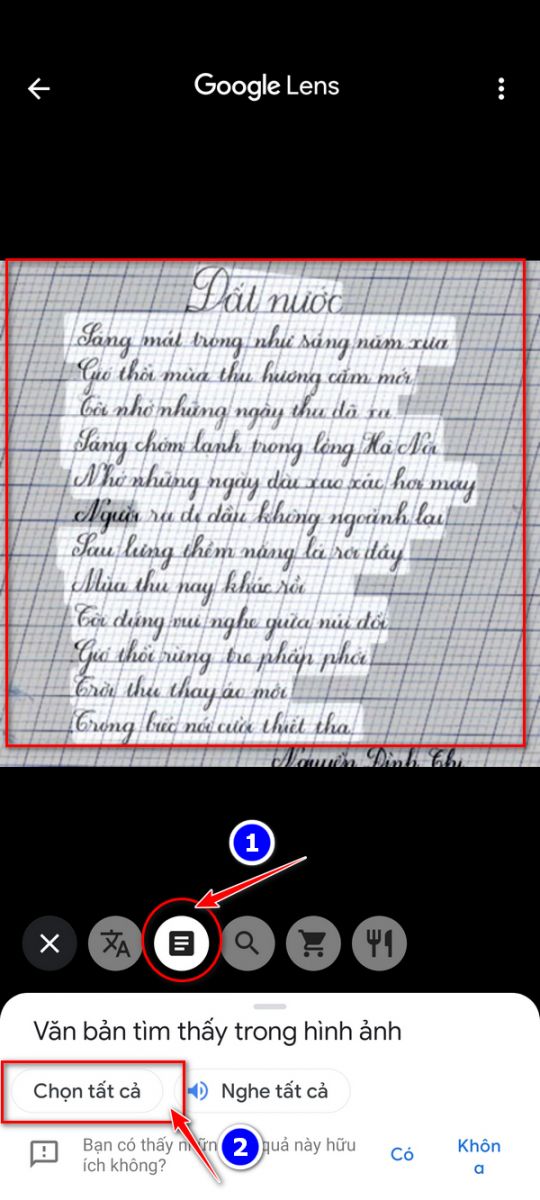 Google Lens
Đất nước
Sáng mát trong như sáng năm xưa
Gió thổi mùa thu hương cốm mới
Tôi nhớ những ngày thu đã xa
Sáng chớm lạnh trong lòng Hà Nội
Những ngày dài xao xác hơi may
Người ra đi đầu không ngoảnh lại
Sau lưng thềm nắng lá rơi đầy
Mùa thu nay khác rồi
Tôi đứng vui nghe giữa núi đồi
Gió thổi rừng tre phấp phới
Trời thu thay áo mới
Trong biếc nói cười thiết tha
Nguyễn Đình Thi
1
Văn bản tìm thấy trong hình ảnh
Chọn tất cả
Nghe tất cả
2
Bạn có thấy quả này hữu
ích không?
Có
Khôn